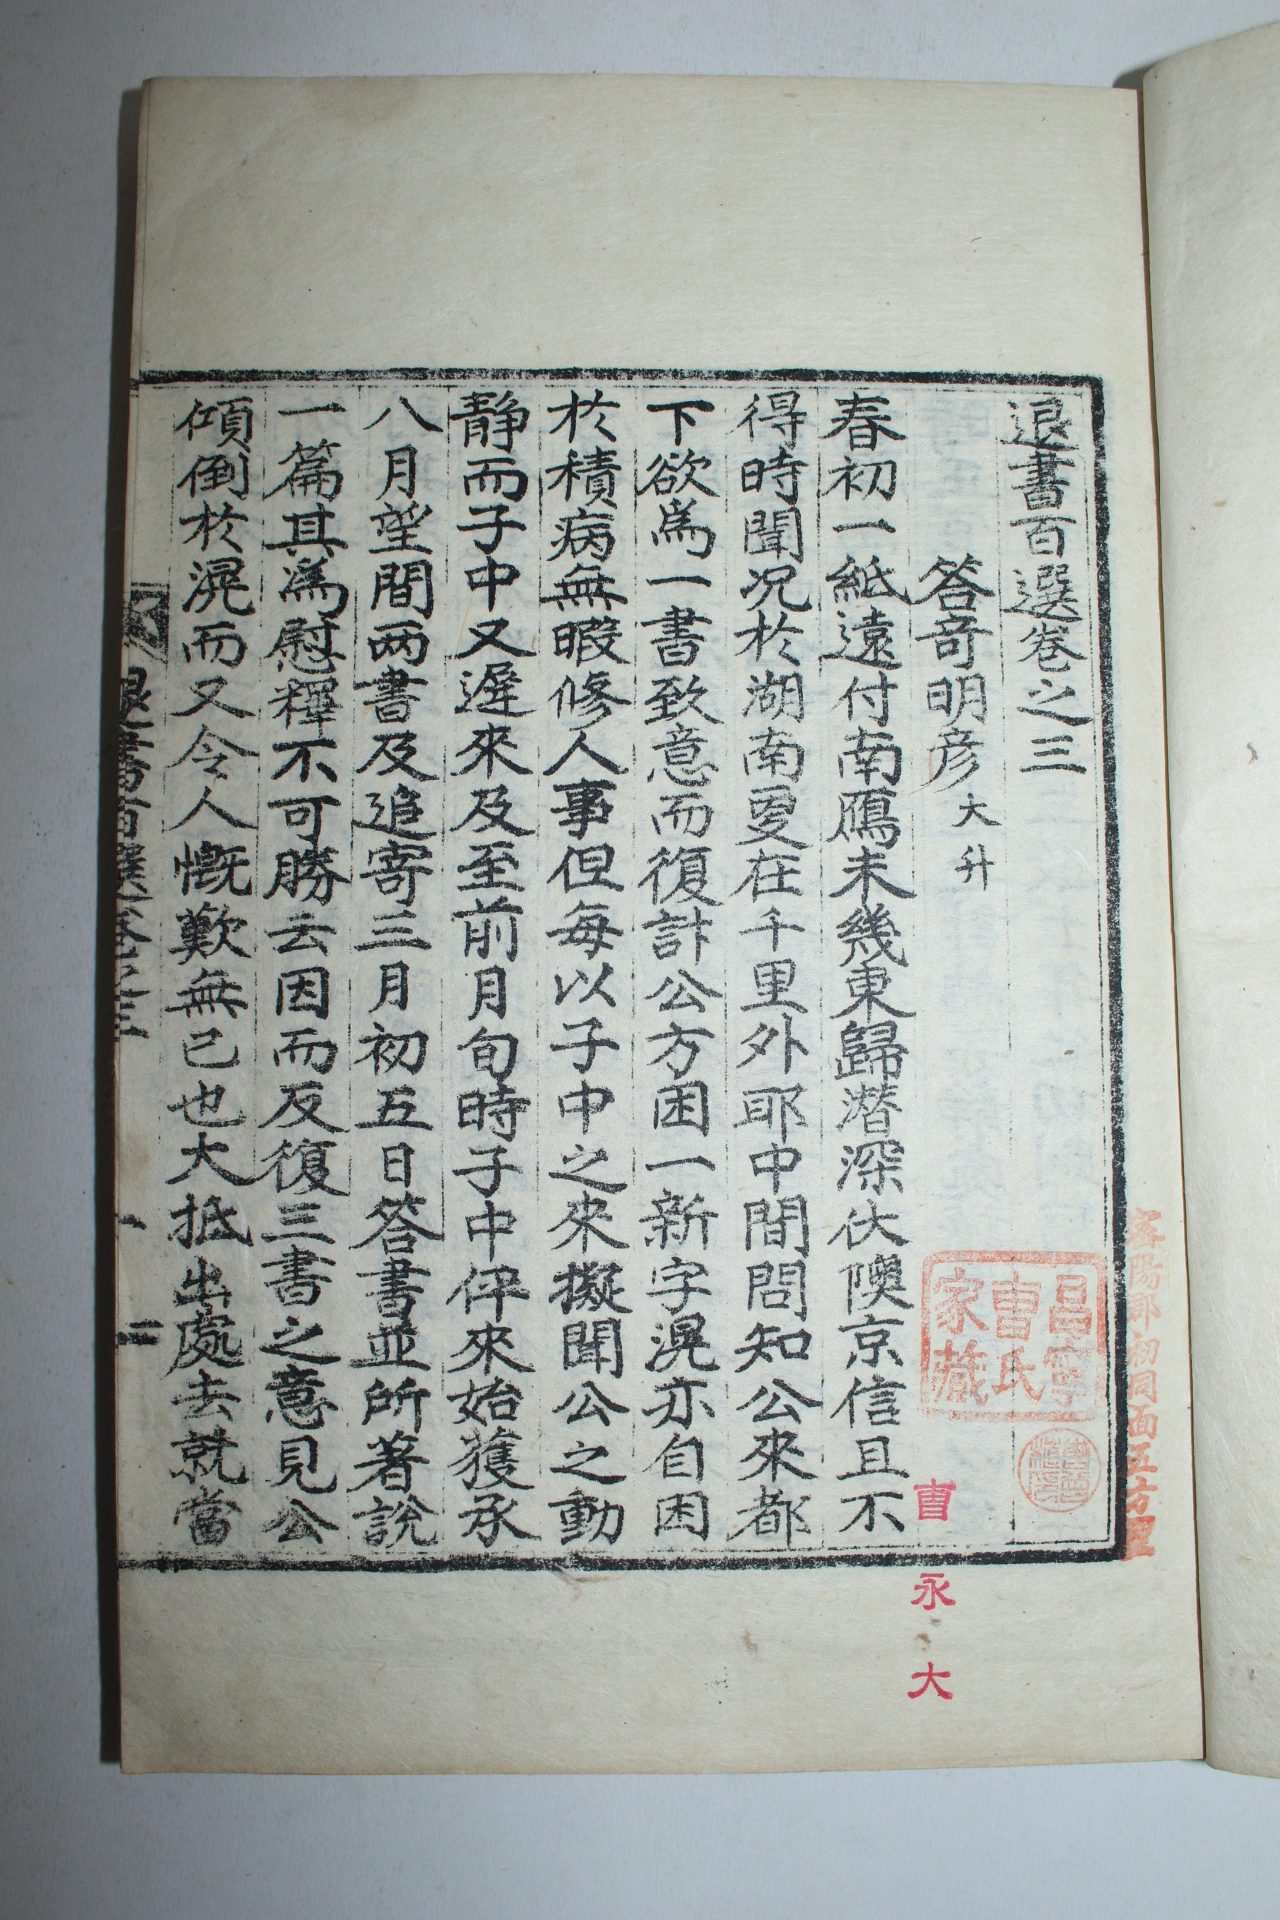 退書百選卷之三
答奇明彦大升
春初一紙遠付南鴈未幾東歸潛深伏隩京信且不
得時聞况於湖南夐在千里外耶中間問知公來都
下欲爲一書致意而復計公方困一新字滉亦自困
於積病無暇修人事但每以子中之來擬聞公之動
靜而子中又遲來及至前月旬時子中伻來始獲承
八月望間两書及追寄三月初五日答書並所著說
一篇其爲慰釋不可勝云因而反復三書之意見公
傾倒於滉而又令人慨歎無已也大抵出處去就當
退書百選卷之三
一
二
昌寧
曹氏
家藏
密陽郡初同面五方里
曺永大